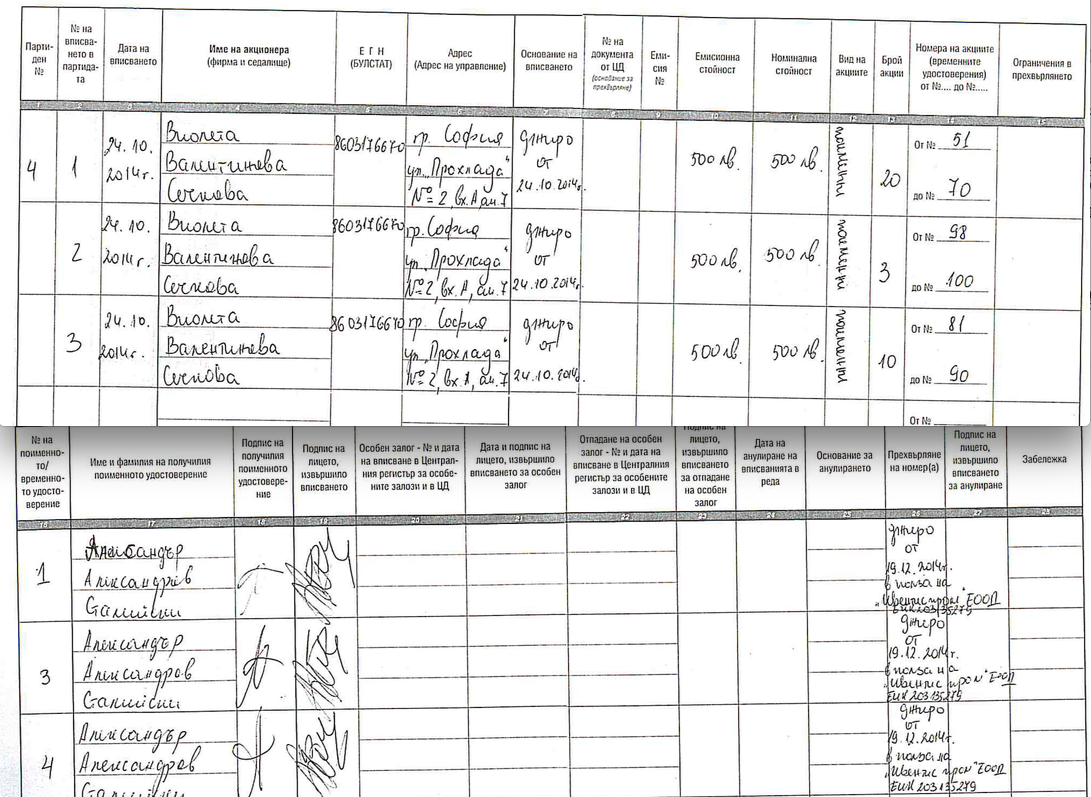 Парти-
ден
№
№ на
вписва-
нето в
партида-
та
Дата на
вписването
Име на акционера
(фирма и седалище)
Е Г Н
(БУЛСТАТ)
Адрес
(Адрес на управление)
Основание на
вписването
№ на
документа
от ЦД
(основание за
прехвърляне)
Еми-
сия
№
Емисионна
стойност
Номинална
стойност
Вид на
акциите
Брой
акции
Номера на акциите
(временните
удостоверения)
от №.... до №.....
Ограничения в
прехвърлянето
1 2 3 4 5 6 7 8 9 10 11 12 13 14 15
4
1
24.10.
2014г.
Виолета
Валентинова
8603176670
гр. София
ул. „Прохлада“
№ 2, вх. А, ап. 7
джиро
от
24.10.2014г.
500 лв.
500 лв.
поименни
20
От № 51
до № 70
2
24.10.
2014г.
Виолета
Валентинова
8603176670
гр. София
ул. „Прохлада“
№ 2, вх. А, ап. 7
джиро
от
24.10.2014г.
500 лв.
500 лв.
поименни
3
От № 98
до № 100
3
24.10.
2014г.
Виолета
Валентинова
8603176670
гр. София
ул. „Прохлада“
№ 2, вх. А, ап. 7
джиро
от
24.10.2014г.
500 лв.
500 лв.
поименни
10
От № 81
до № 90
От №
№ на
поименно-
то/
временно-
то удосто-
верение
Име и фамилия на получилия
поименното удостоверение
Подпис на
получилия
поименното
удостовере-
ние
Подпис на
лицето,
извършило
вписването
Особен залог - № и дата
на вписване в Централ-
ния регистър за особе-
ните залози и в ЦД
Дата и подпис на
лицето, извършило
вписването за особен
залог
Отпадане на особен
залог - № и дата на
вписване в Централния
регистър за особените
залози и в ЦД
Подпис на
лицето,
извършило
вписването
за отпадане
на особен
залог
Дата на
анулиране на
вписванията в
реда
Основание за
анулирането
Прехвърляне
на номер(а)
Подпис на
лицето,
извършило
вписването
за анулиране
Забележка
16 17 18 19 20 21 22 23 24 25 26 27 28
1
Александър
Александров
Сталийски
джиро
от
19.12.2014г.
в полза на
„Ивентис пром“ ЕООД
ЕИК 203135279
3
Александър
Александров
Сталийски
джиро
от
19.12.2014г.
в полза на
„Ивентис пром“ ЕООД
ЕИК 203135279
4
Александър
Александров
Сталийски
джиро
от
19.12.2014г.
в полза на
„Ивентис пром“ ЕООД
ЕИК 203135279